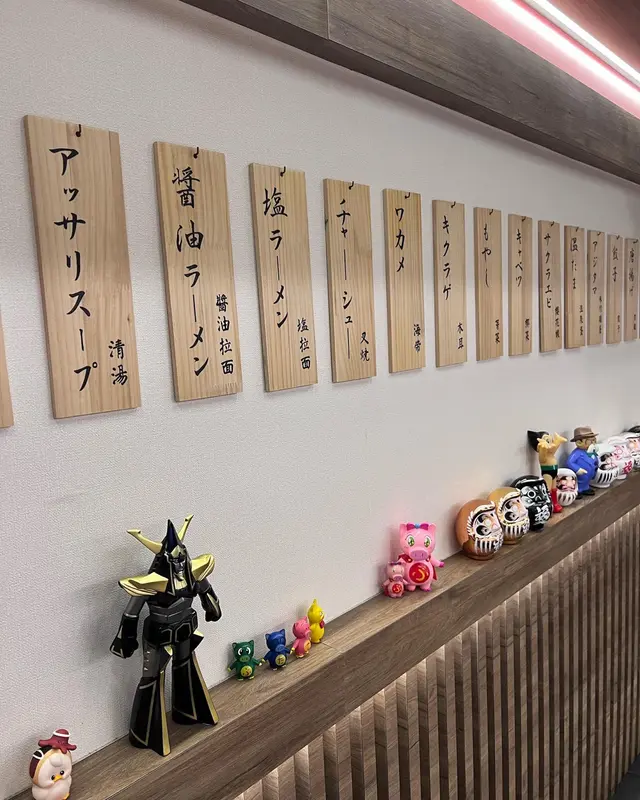 アッサリスープ
清湯
醤油ラーメン
醬油拉面
塩ラーメン
塩拉面
チャーシュー
叉燒
ワカメ
海带
キクラゲ
木耳
もやし
芽菜
キャベツ
椰菜
サクラエビ
櫻花蝦
温たま
アジタマ
餃子